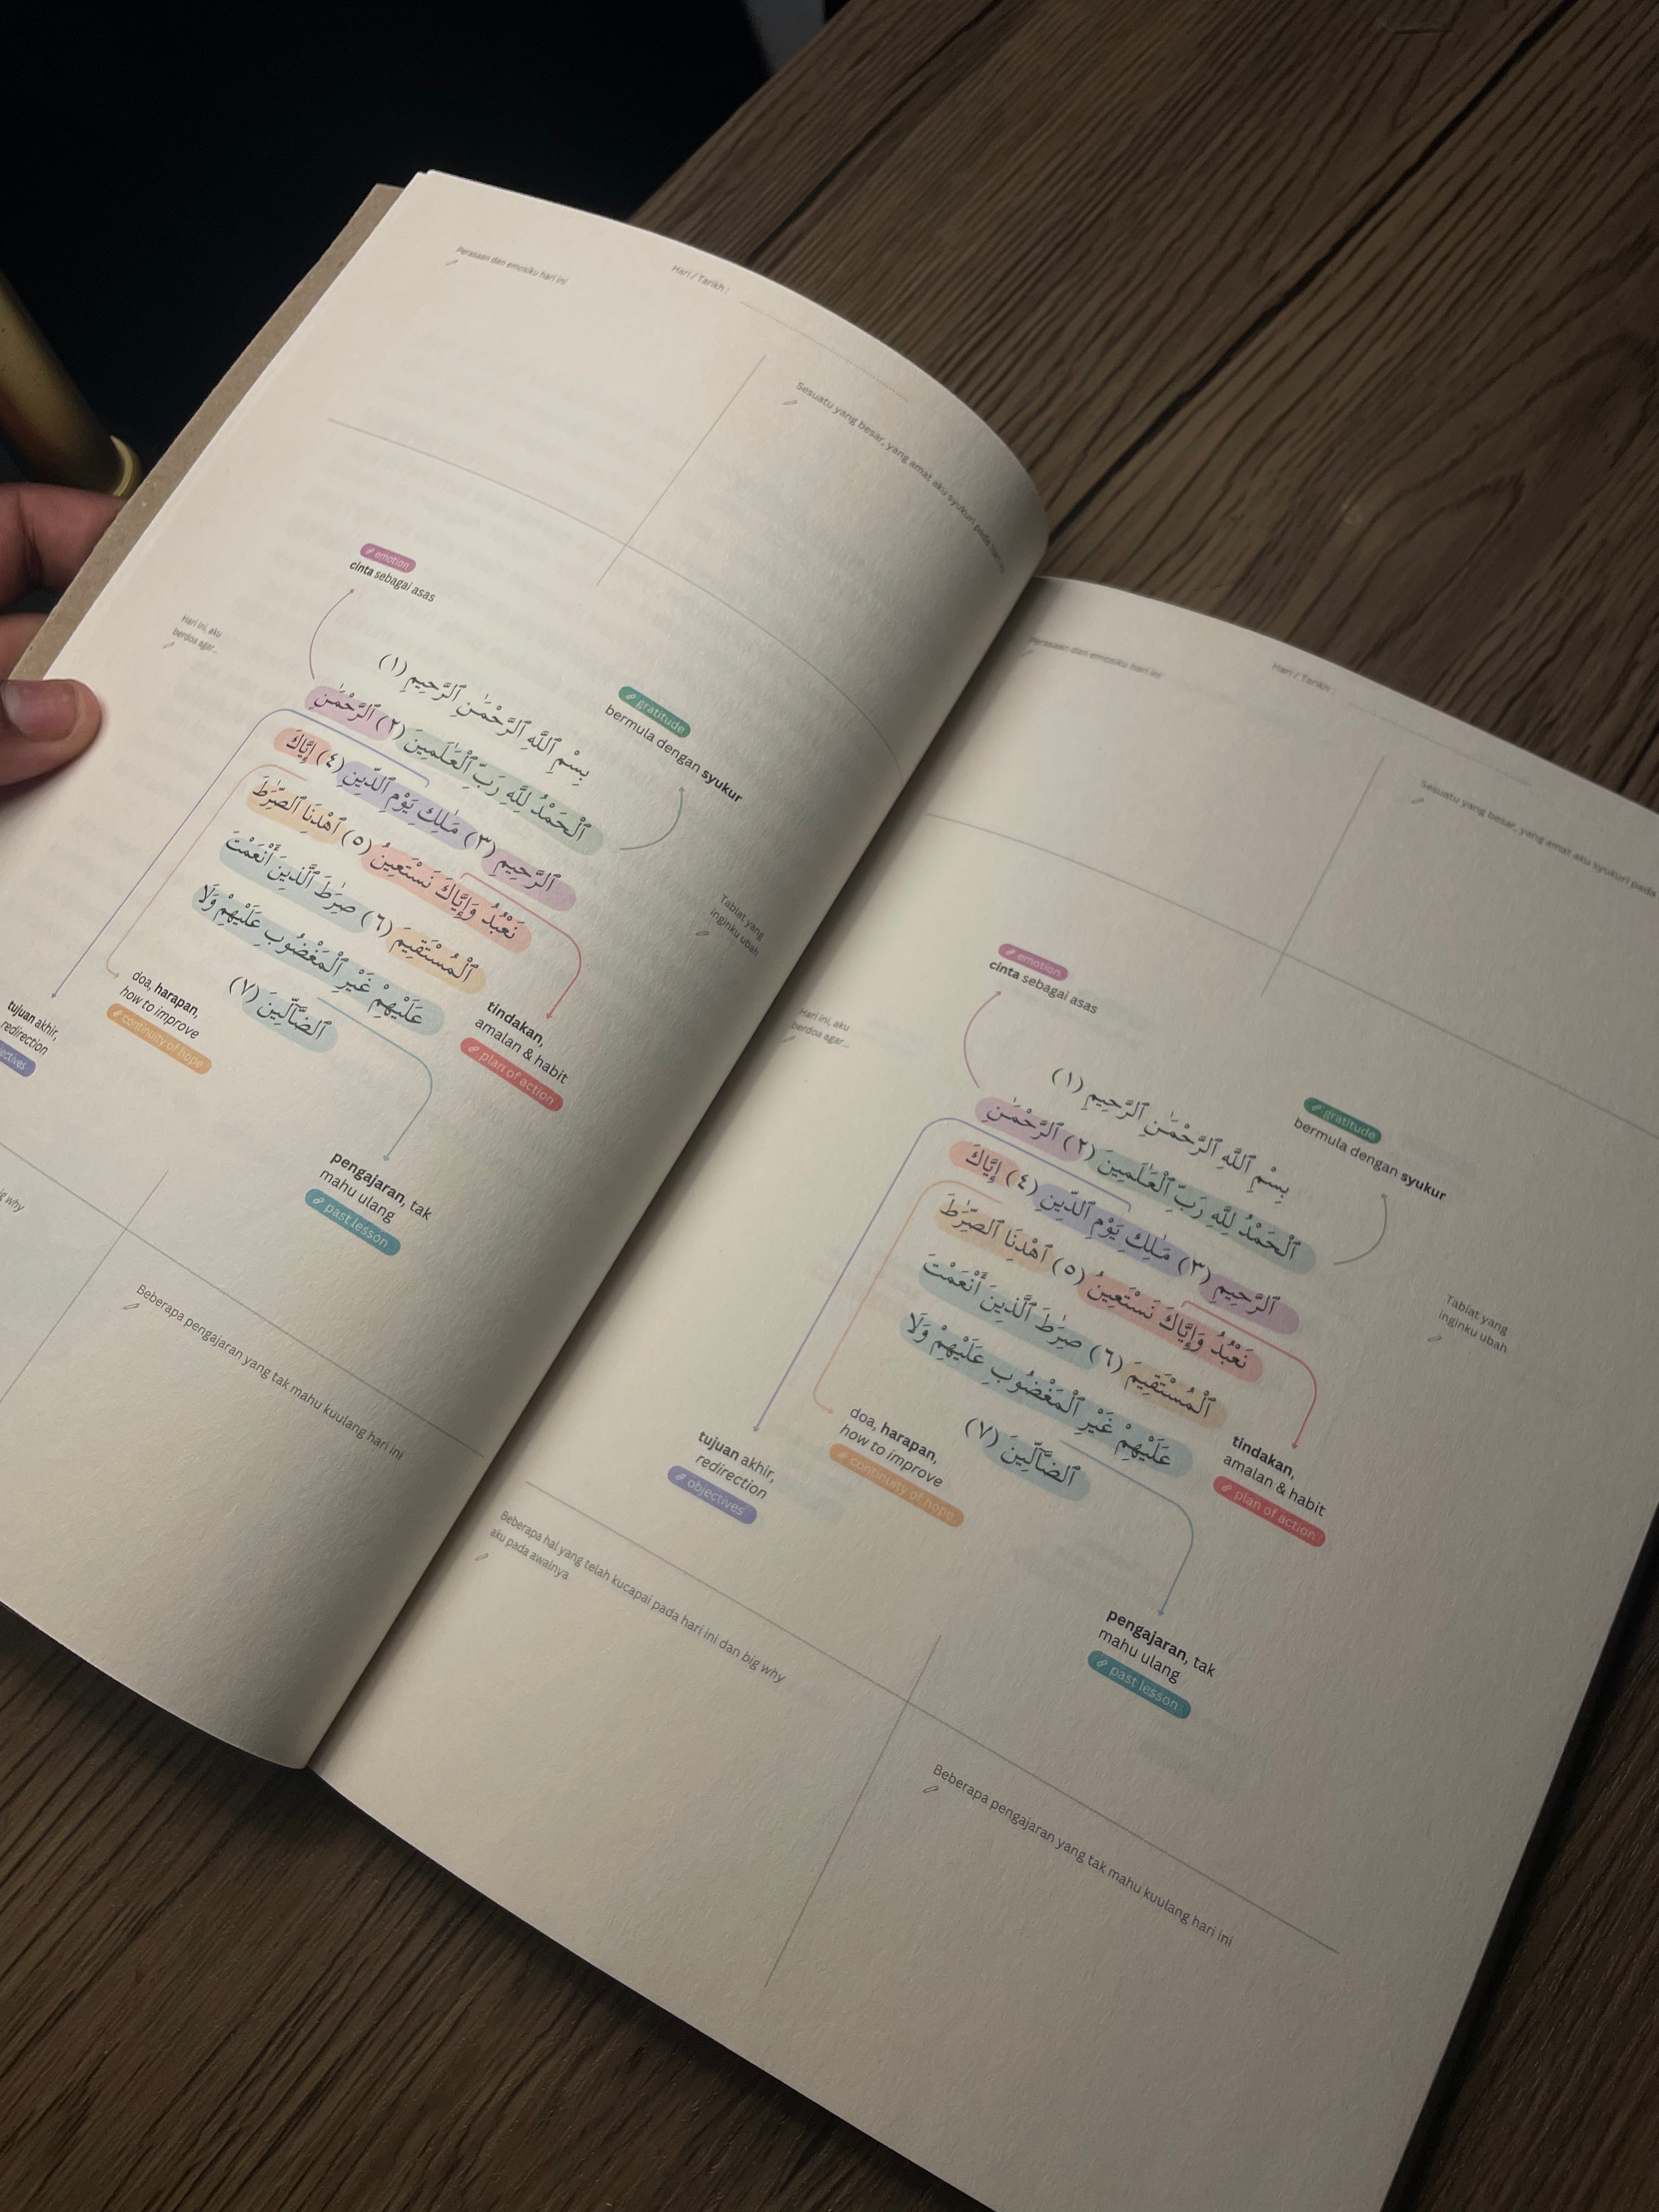 Perasaan dan emosiku hari ini
Hari / Tarikh :
Sesuatu yang besar, yang amat aku syukuri pada
emotion
cinta sebagai asas
Hari ini, aku
berdoa agar...
gratitude
bermula dengan syukur
بِسْمِ ٱللَّهِ ٱلرَّحْمَـٰنِ ٱلرَّحِيمِ (١)
ٱلْحَمْدُ لِلَّهِ رَبِّ ٱلْعَـٰلَمِينَ (٢) ٱلرَّحْمَـٰنِ
ٱلرَّحِيمِ (٣) مَـٰلِكِ يَوْمِ ٱلدِّينِ (٤) إِيَّاكَ
نَعْبُدُ وَإِيَّاكَ نَسْتَعِينُ (٥) ٱهْدِنَا ٱلصِّرَٰطَ
ٱلْمُسْتَقِيمَ (٦) صِرَٰطَ ٱلَّذِينَ أَنْعَمْتَ
عَلَيْهِمْ غَيْرِ ٱلْمَغْضُوبِ عَلَيْهِمْ وَلَا
ٱلضَّآلِّينَ (٧)
Tabiat yang
inginku ubah
tujuan akhir,
redirection
doa, harapan,
how to improve
continuity of hope
tindakan,
amalan & habit
plan of action
pengajaran, tak
mahu ulang
past lesson
big why
Beberapa pengajaran yang tak mahu kuulang hari ini
Perasaan dan emosiku hari ini
Hari / Tarikh :
Sesuatu yang besar, yang amat aku syukuri pada
emotion
cinta sebagai asas
Hari ini, aku
berdoa agar...
gratitude
bermula dengan syukur
بِسْمِ ٱللَّهِ ٱلرَّحْمَـٰنِ ٱلرَّحِيمِ (١)
ٱلْحَمْدُ لِلَّهِ رَبِّ ٱلْعَـٰلَمِينَ (٢) ٱلرَّحْمَـٰنِ
ٱلرَّحِيمِ (٣) مَـٰلِكِ يَوْمِ ٱلدِّينِ (٤) إِيَّاكَ
نَعْبُدُ وَإِيَّاكَ نَسْتَعِينُ (٥) ٱهْدِنَا ٱلصِّرَٰطَ
ٱلْمُسْتَقِيمَ (٦) صِرَٰطَ ٱلَّذِينَ أَنْعَمْتَ
عَلَيْهِمْ غَيْرِ ٱلْمَغْضُوبِ عَلَيْهِمْ وَلَا
ٱلضَّآلِّينَ (٧)
Tabiat yang
inginku ubah
tujuan akhir,
redirection
objectives
doa, harapan,
how to improve
continuity of hope
tindakan,
amalan & habit
plan of action
pengajaran, tak
mahu ulang
past lesson
Beberapa hal yang telah kucapai pada hari ini dan big why
aku pada awalnya
Beberapa pengajaran yang tak mahu kuulang hari ini